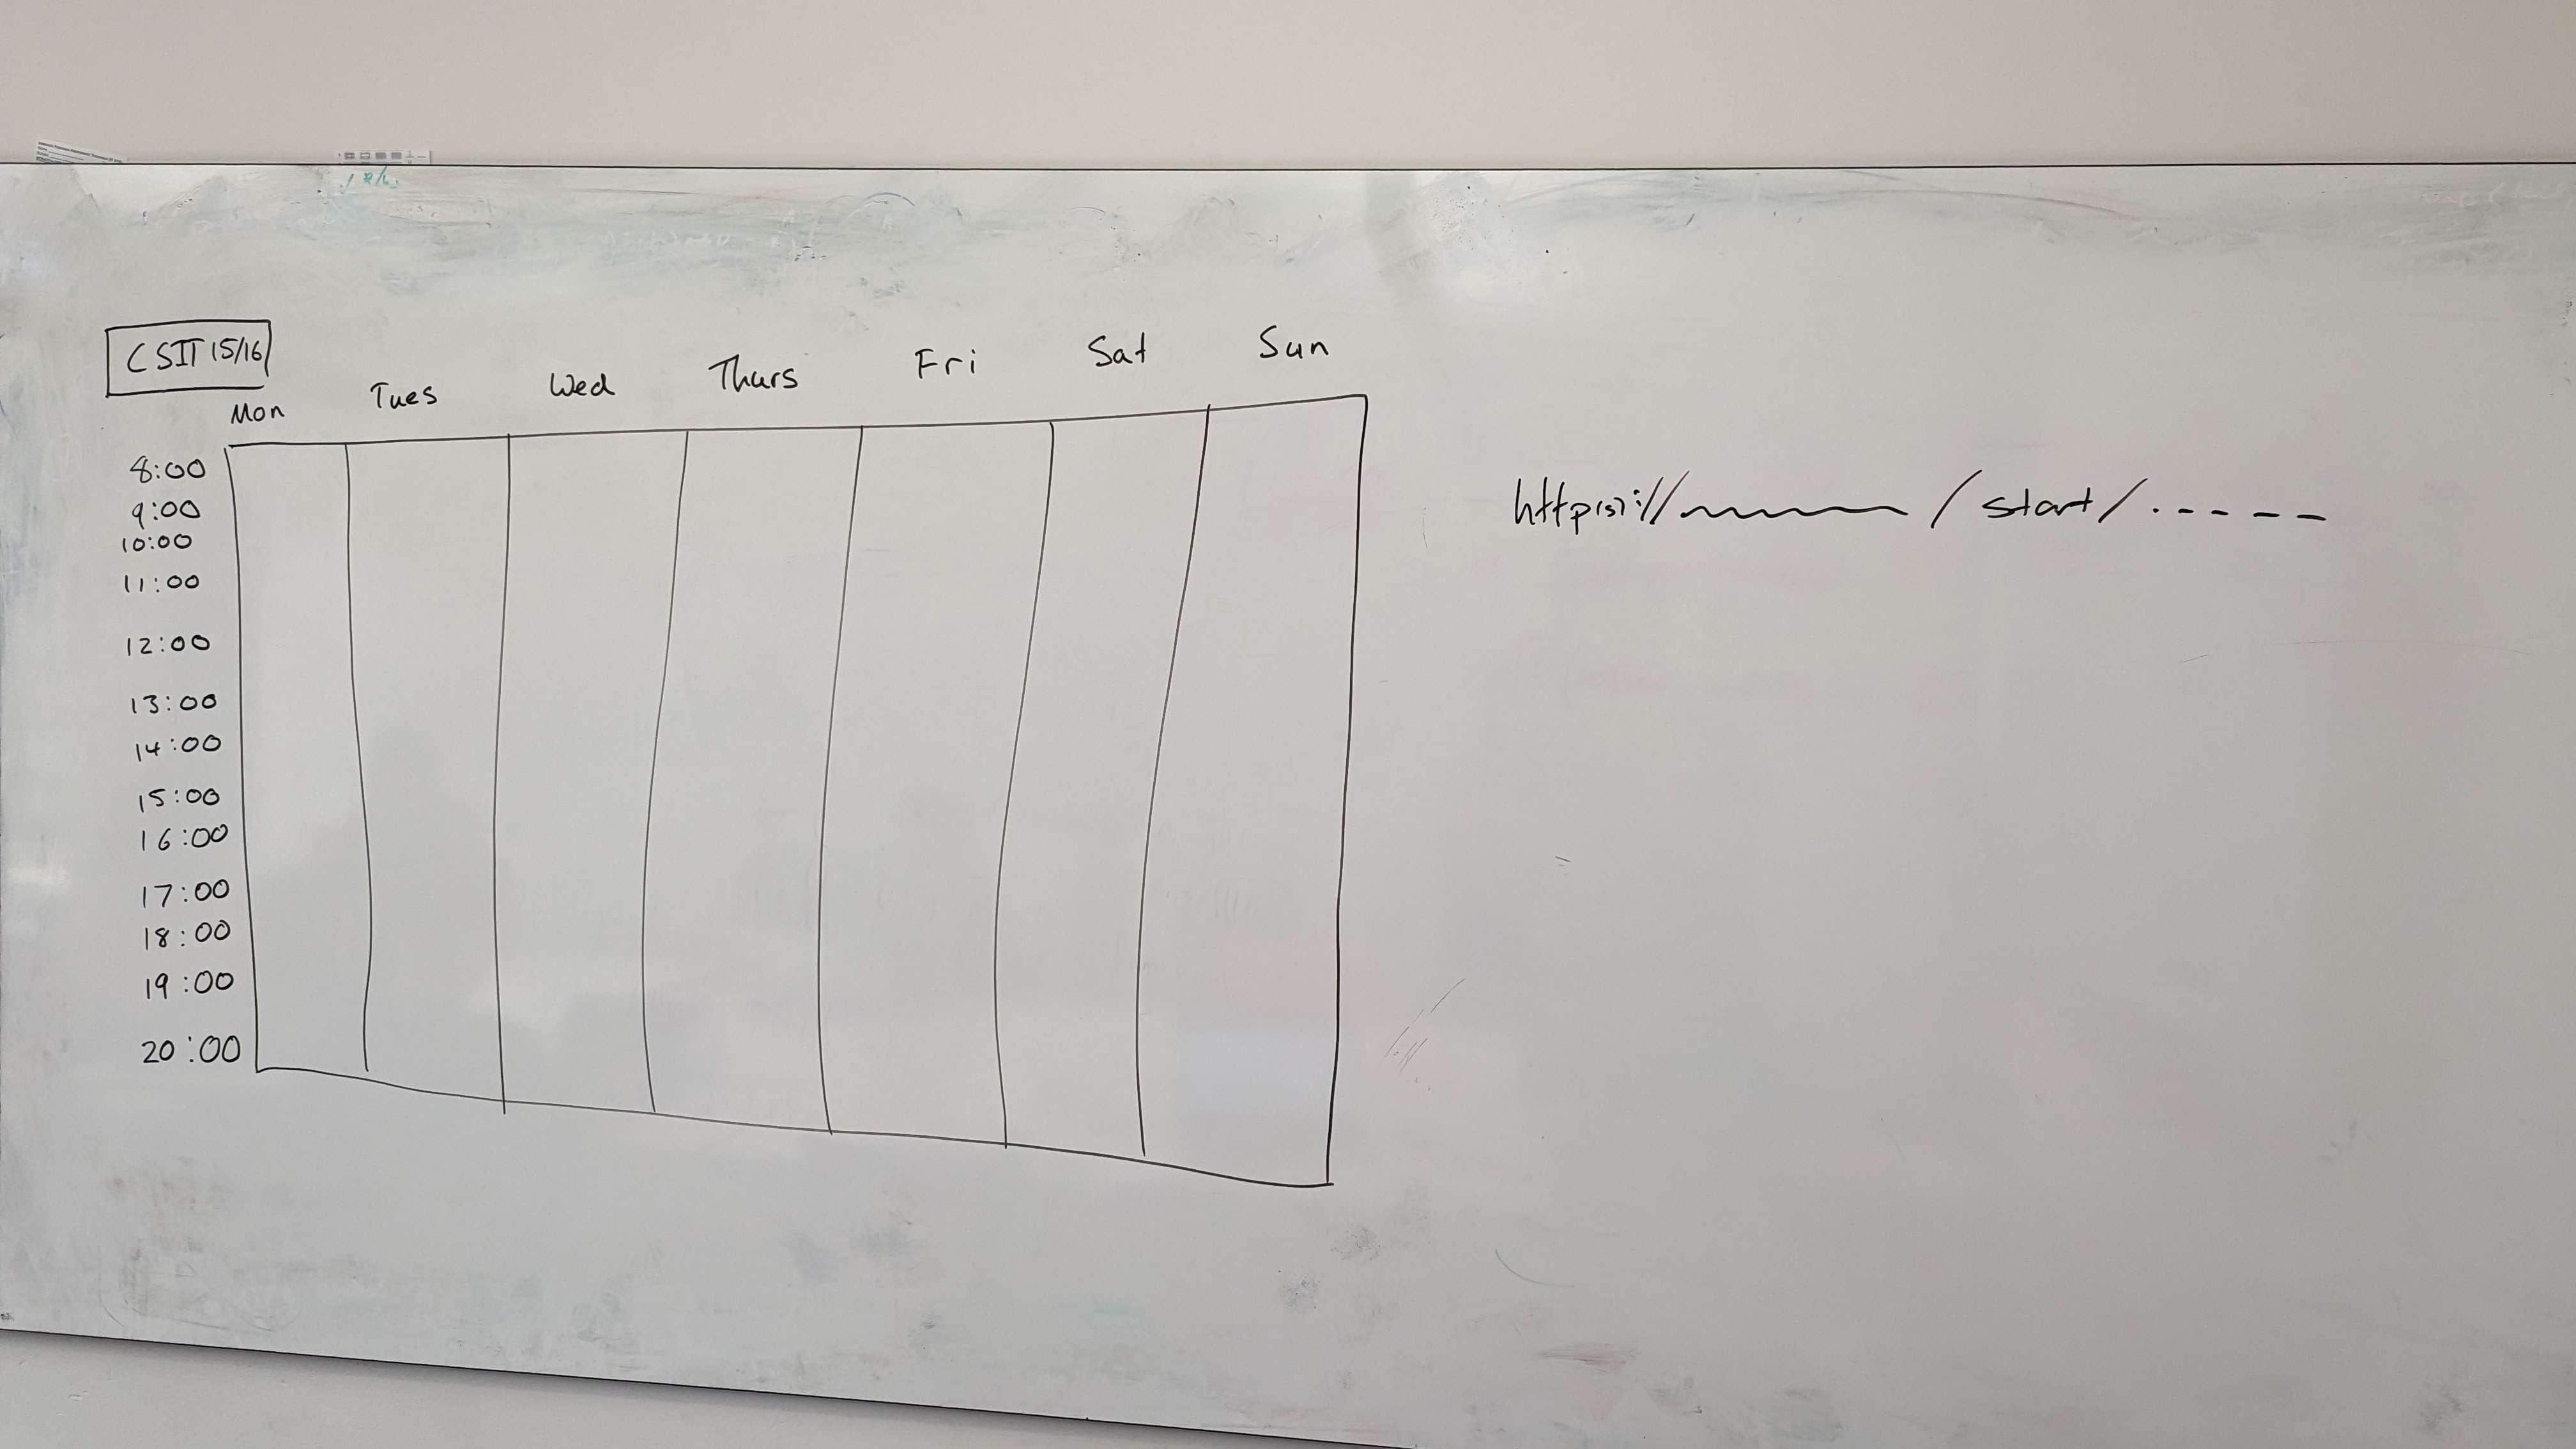 CSIT 15/16
Mon Tues Wed Thurs Fri Sat Sun
8:00
9:00
10:00
11:00
12:00
13:00
14:00
15:00
16:00
17:00
18:00
19:00
20:00
http(s)://
/ start / . - - - -